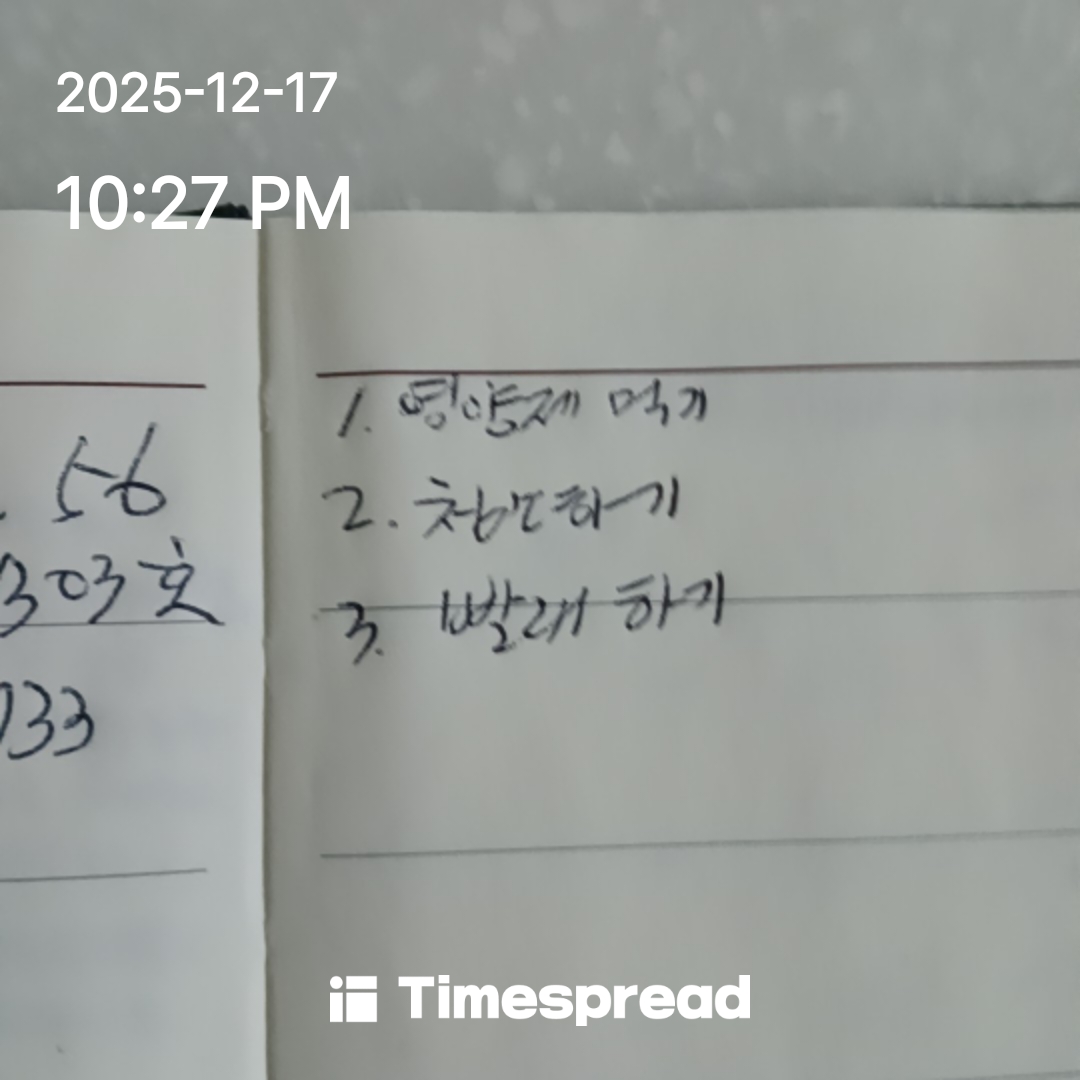 2025-12-17
10:27 PM
56
303호
733
1. 영양제 먹기
2. 청소하기
3. 빨래 하기
Timespread